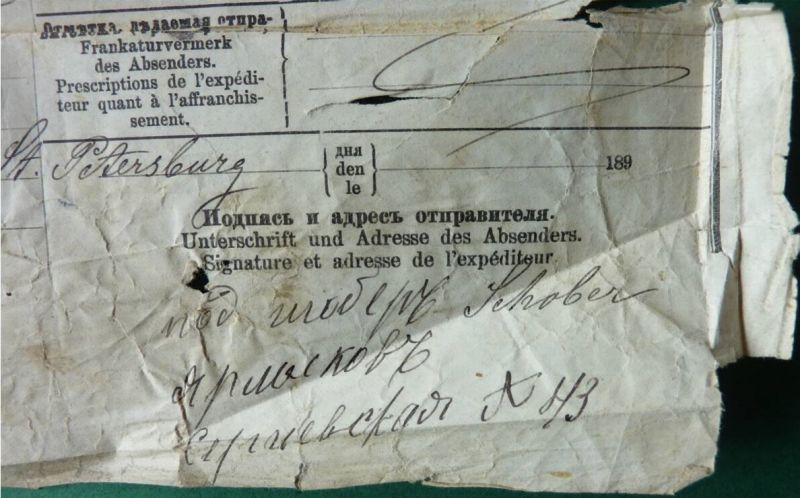 Отмѣтка, дѣлаемая отпра-
Frankaturvermerk
des Absenders.
Prescriptions de l'expédi-
teur quant à l'affranchis-
sement.
St. Petersburg
дня
den
le
189
Подпись и адресъ отправителя.
Unterschrift und Adresse des Absenders.
Signature et adresse de l'expéditeur
под шоберъ Schober
Сергіевская N 43